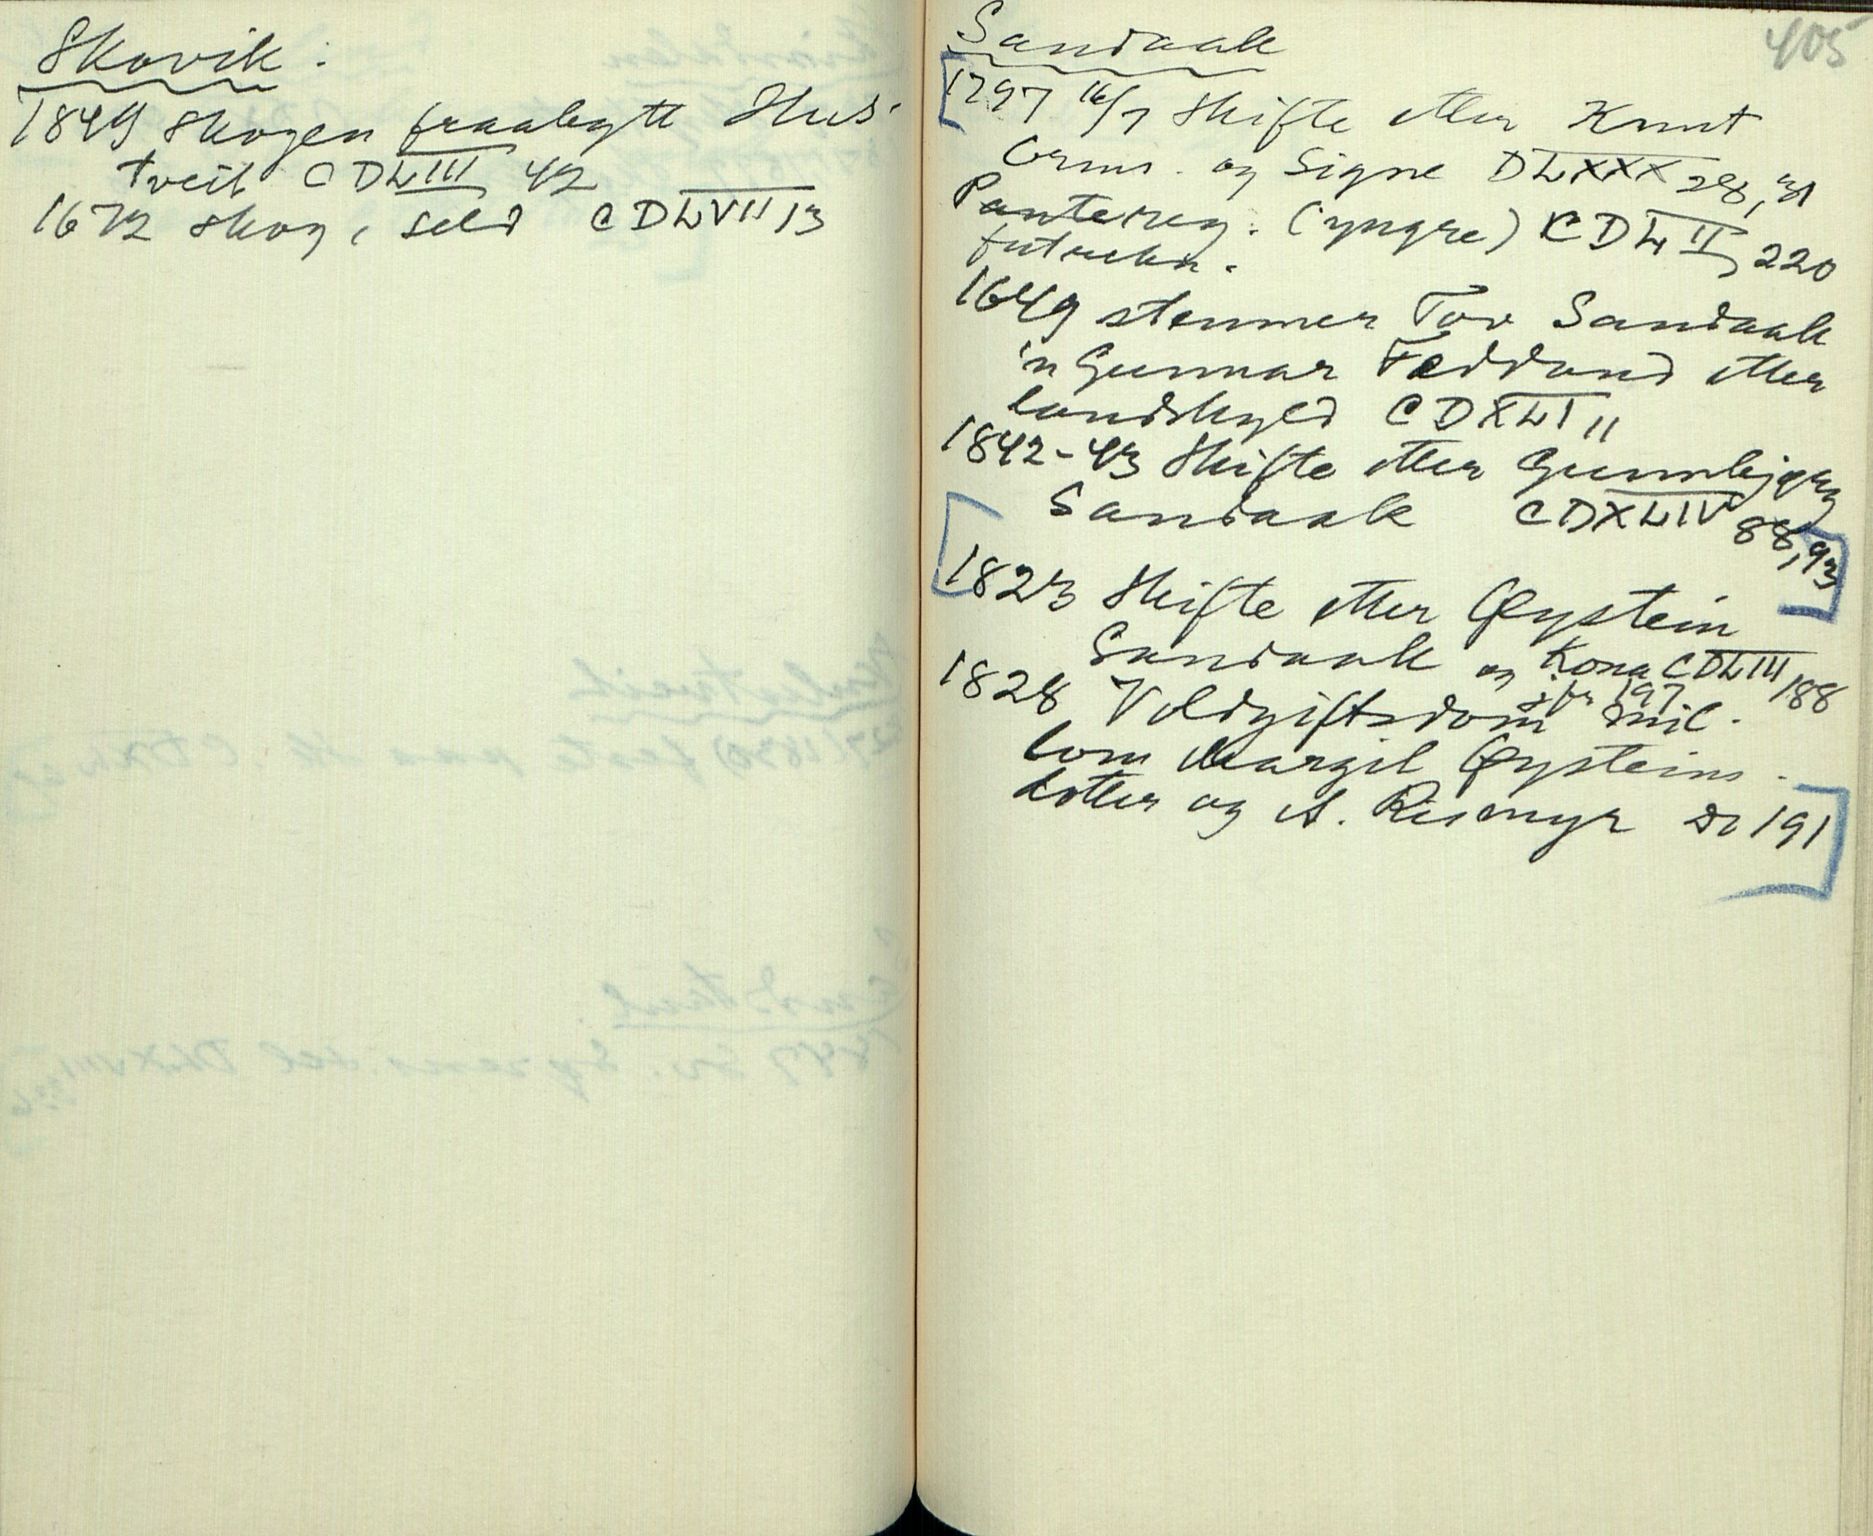 Skovik:
1849 Skogen fraabytt Hus-
tveit CDLIII 42
1672 Skog, seld CDLVII 13
405
Sandaak
1797 16/7 Skifte etter Knut
Orms. og Signe DLXXX 28, 31
Pantereg. (yngre) CDLII, 220
1649 stemner Tov Sandaak
Gunnar etter
landskyld CDXLI 11
1842-43 Skifte etter Gunnbjørg
Sandaak CDXLIV 88, 93
1823 Skifte etter Øystein
Sandaak og Kona CDLIII 188
197
1828 Voldgiftsdom mil-
lom Margit Øysteins-
dotter og A. Rismyr Do 191